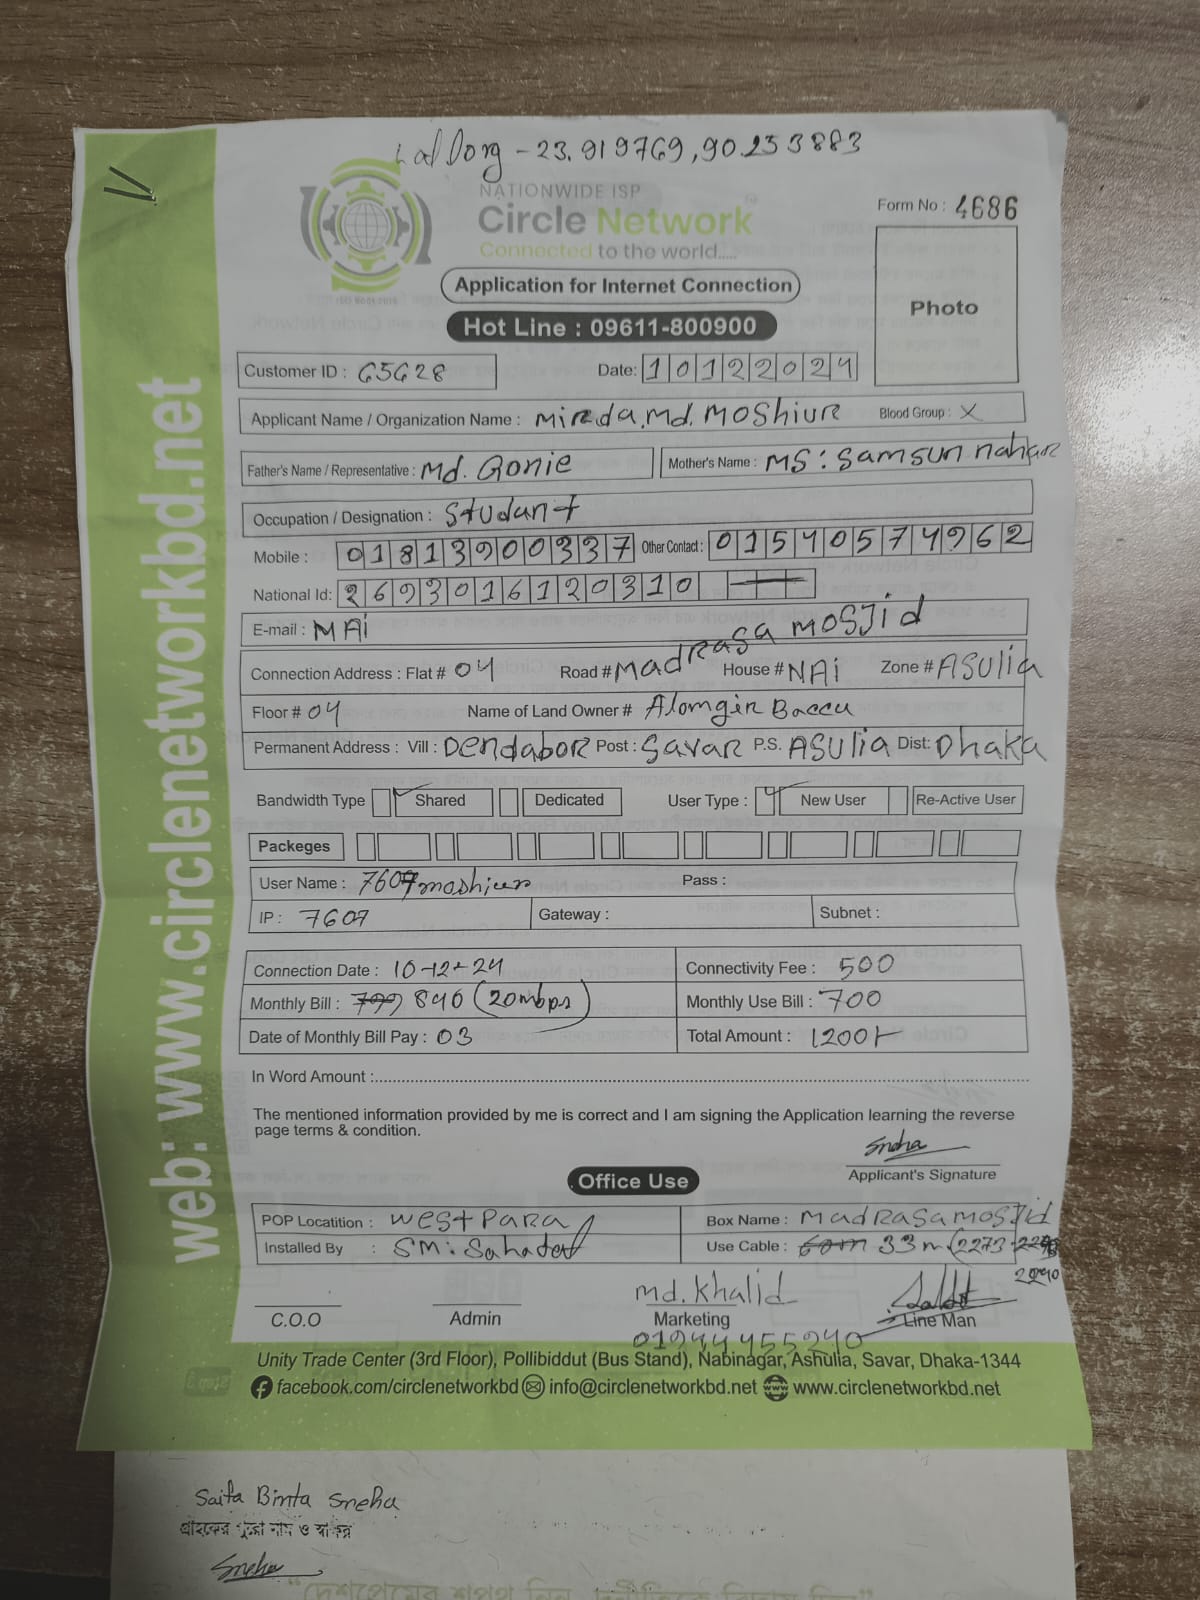 Lat Long - 23.919769, 90.253883
NATIONWIDE ISP
Circle Network
Connected to the world.....
Form No : 4686
Photo
Application for Internet Connection
Hot Line : 09611-800900
Customer ID : G5G28 Date: 10122024
Applicant Name / Organization Name : Mirda.Md. Moshiur Blood Group : X
Father's Name / Representative : Md. Gonie Mother's Name : MS: Samsun nahar
Occupation / Designation : Studant
Mobile : 01813900337 Other Contact : 01540574962
National Id: 2693016120310
E-mail : MAi
Connection Address : Flat # 04 Road # Madrasa Mosjid House # NAi Zone # ASulia
Floor # 04 Name of Land Owner # Alomgir Baccu
Permanent Address : Vill : Dendabor Post : Savar P.S. ASulia Dist: Dhaka
Bandwidth Type Shared Dedicated User Type : New User Re-Active User
Packeges
User Name : 7607moshiur Pass :
IP : 7607 Gateway : Subnet :
Connection Date : 10-12-24 Connectivity Fee : 500
Monthly Bill : 799 840 (20mbps) Monthly Use Bill : 700
Date of Monthly Bill Pay : 03 Total Amount : 1200/-
In Word Amount :
The mentioned information provided by me is correct and I am signing the Application learning the reverse
page terms & condition.
Sneha
Applicant's Signature
Office Use
POP Locatition : West Para Box Name : Madrasa Mosjid
Installed By : SM: Sahadat Use Cable : 60m 33m (2273-
2240
md. Khalid
C.O.O Admin Marketing Line Man
01944455240
Unity Trade Center (3rd Floor), Pollibiddut (Bus Stand), Nabinagar, Ashulia, Savar, Dhaka-1344
facebook.com/circlenetworkbd info@circlenetworkbd.net www.circlenetworkbd.net
web: www.circlenetworkbd.net
Saifa Binta Sneha
গ্রাহকের পুরো নাম ও স্বাক্ষর
Sneha